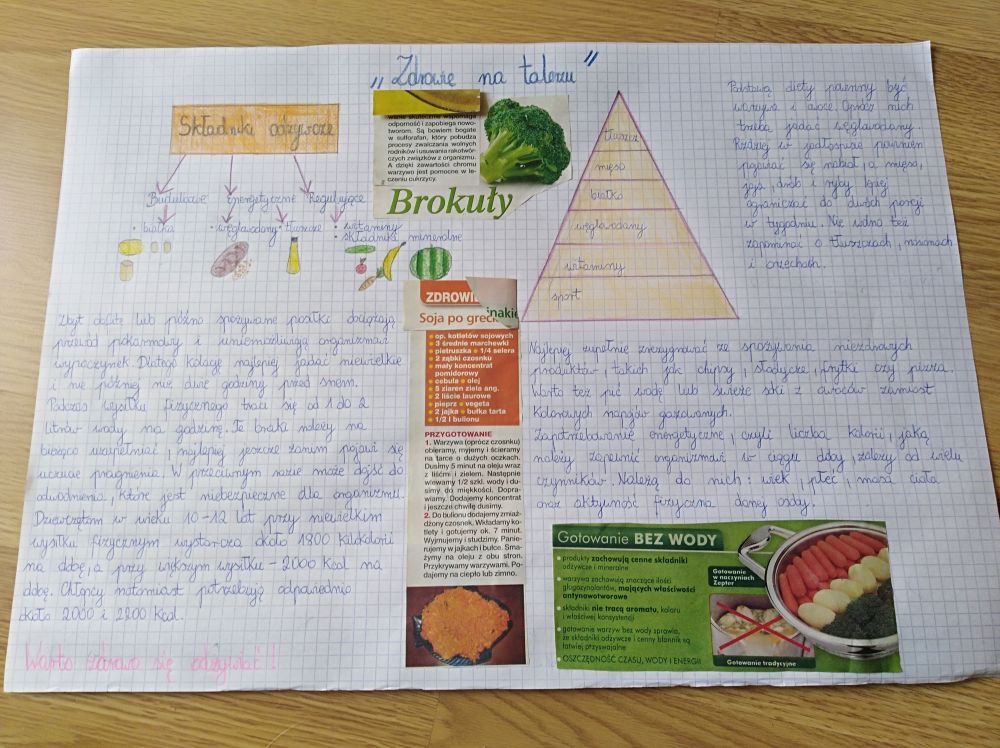 „Zdrowie na talerzu”
Składniki odżywcze
Budulcowe energetyczne Regulujące
• białka
• węglowodany • tłuszcze
• witaminy
• składniki mineralne
wanie skutecznie wspomaga
odporność i zapobiega nowo-
tworom. Są bowiem bogate
w sulforafan, który pobudza
procesy zwalczania wolnych
rodników i usuwania rakotwór-
czych związków z organizmu.
A dzięki zawartości chromu
warzywo jest pomocne w le-
czeniu cukrzycy.
Brokuły
tłuszcz
mięso
białko
węglowodany
witaminy
sport
Podstawą diety powinny być
warzywa i owoce. Oprócz nich
trzeba jadać węglowodany.
Rzadziej w jadłospisie powinien
pojawiać się nabiał, a mięsa,
jaja, drób i ryby lepiej
ograniczać do dwóch porcji
w tygodniu. Nie wolno też
zapominać o tłuszczach, nasionach
i orzechach.
Zbyt obfite lub późno spożywane posiłki obciążają
przewód pokarmowy i uniemożliwiają organizmowi
wypoczynek. Dlatego kolację najlepiej jadać niewielkie
i nie później niż dwie godziny przed snem.
Podczas wysiłku fizycznego traci się od 1 do 2
litrów wody na godzinę. Te braki należy na
bieżąco uzupełniać, najlepiej jeszcze zanim pojawi się
uczucie pragnienia. W przeciwnym razie może dojść do
odwodnienia, które jest niebezpieczne dla organizmu.
Dziewczętom w wieku 10-12 lat przy niewielkim
wysiłku fizycznym wystarcza około 1800 kilokalorii
na dobę, a przy większym wysiłku - 2000 kcal na
dobę. Chłopcy natomiast potrzebują odpowiednio
około 2000 i 2200 kcal.
Warto zdrowo się odżywiać!
ZDROWIE
inakie
Soja po grec
• op. kotletów sojowych
• 3 średnie marchewki
• pietruszka • 1/4 selera
• 2 ząbki czosnku
• mały koncentrat
pomidorowy
• cebula • olej
• 5 ziaren ziela ang.
• 2 liście laurowe
• pieprz • vegeta
• 2 jajka • bułka tarta
• 1/2 l bulionu
PRZYGOTOWANIE
1. Warzywa (oprócz czosnku)
obieramy, myjemy i ścieramy
na tarce o dużych oczkach.
Dusimy 5 minut na oleju wraz
z liśćmi i zielem. Następnie
wlewamy 1/2 szkl. wody i du-
simy do miękkości. Dopra-
wiamy. Dodajemy koncentrat
i jeszcze chwilę dusimy.
2. Do bulionu dodajemy zmiaż-
dżony czosnek. Wkładamy ko-
tlety i gotujemy ok. 7 minut.
Wyjmujemy i studzimy. Panie-
rujemy w jajkach i bułce. Sma-
żymy na oleju z obu stron.
Przykrywamy warzywami. Po-
dajemy na ciepło lub zimno.
Najlepiej zupełnie zrezygnować ze spożywania niezdrowych
produktów, takich jak chipsy, słodycze, frytki czy pizza.
Warto też pić wodę lub świeże soki z owoców zamiast
kolorowych napojów gazowanych.
Zapotrzebowanie energetyczne, czyli liczba kalorii, jaką
należy zapewnić organizmowi w ciągu doby, zależy od wielu
czynników. Należą do nich: wiek, płeć, masa ciała
oraz aktywność fizyczna danej osoby.
Gotowanie BEZ WODY
• produkty zachowują cenne składniki
odżywcze i mineralne
• warzywa zachowują znaczące ilości
glukozynolantów, mających właściwości
antynowotworowe
• składniki nie tracą aromatu, koloru
i właściwej konsystencji
• gotowanie warzyw bez wody sprawia,
że składniki odżywcze i cenny błonnik są
łatwiej przyswajalne
• OSZCZĘDNOŚĆ CZASU, WODY I ENERGII
Gotowanie
w naczyniach
Zepter
Gotowanie tradycyjne